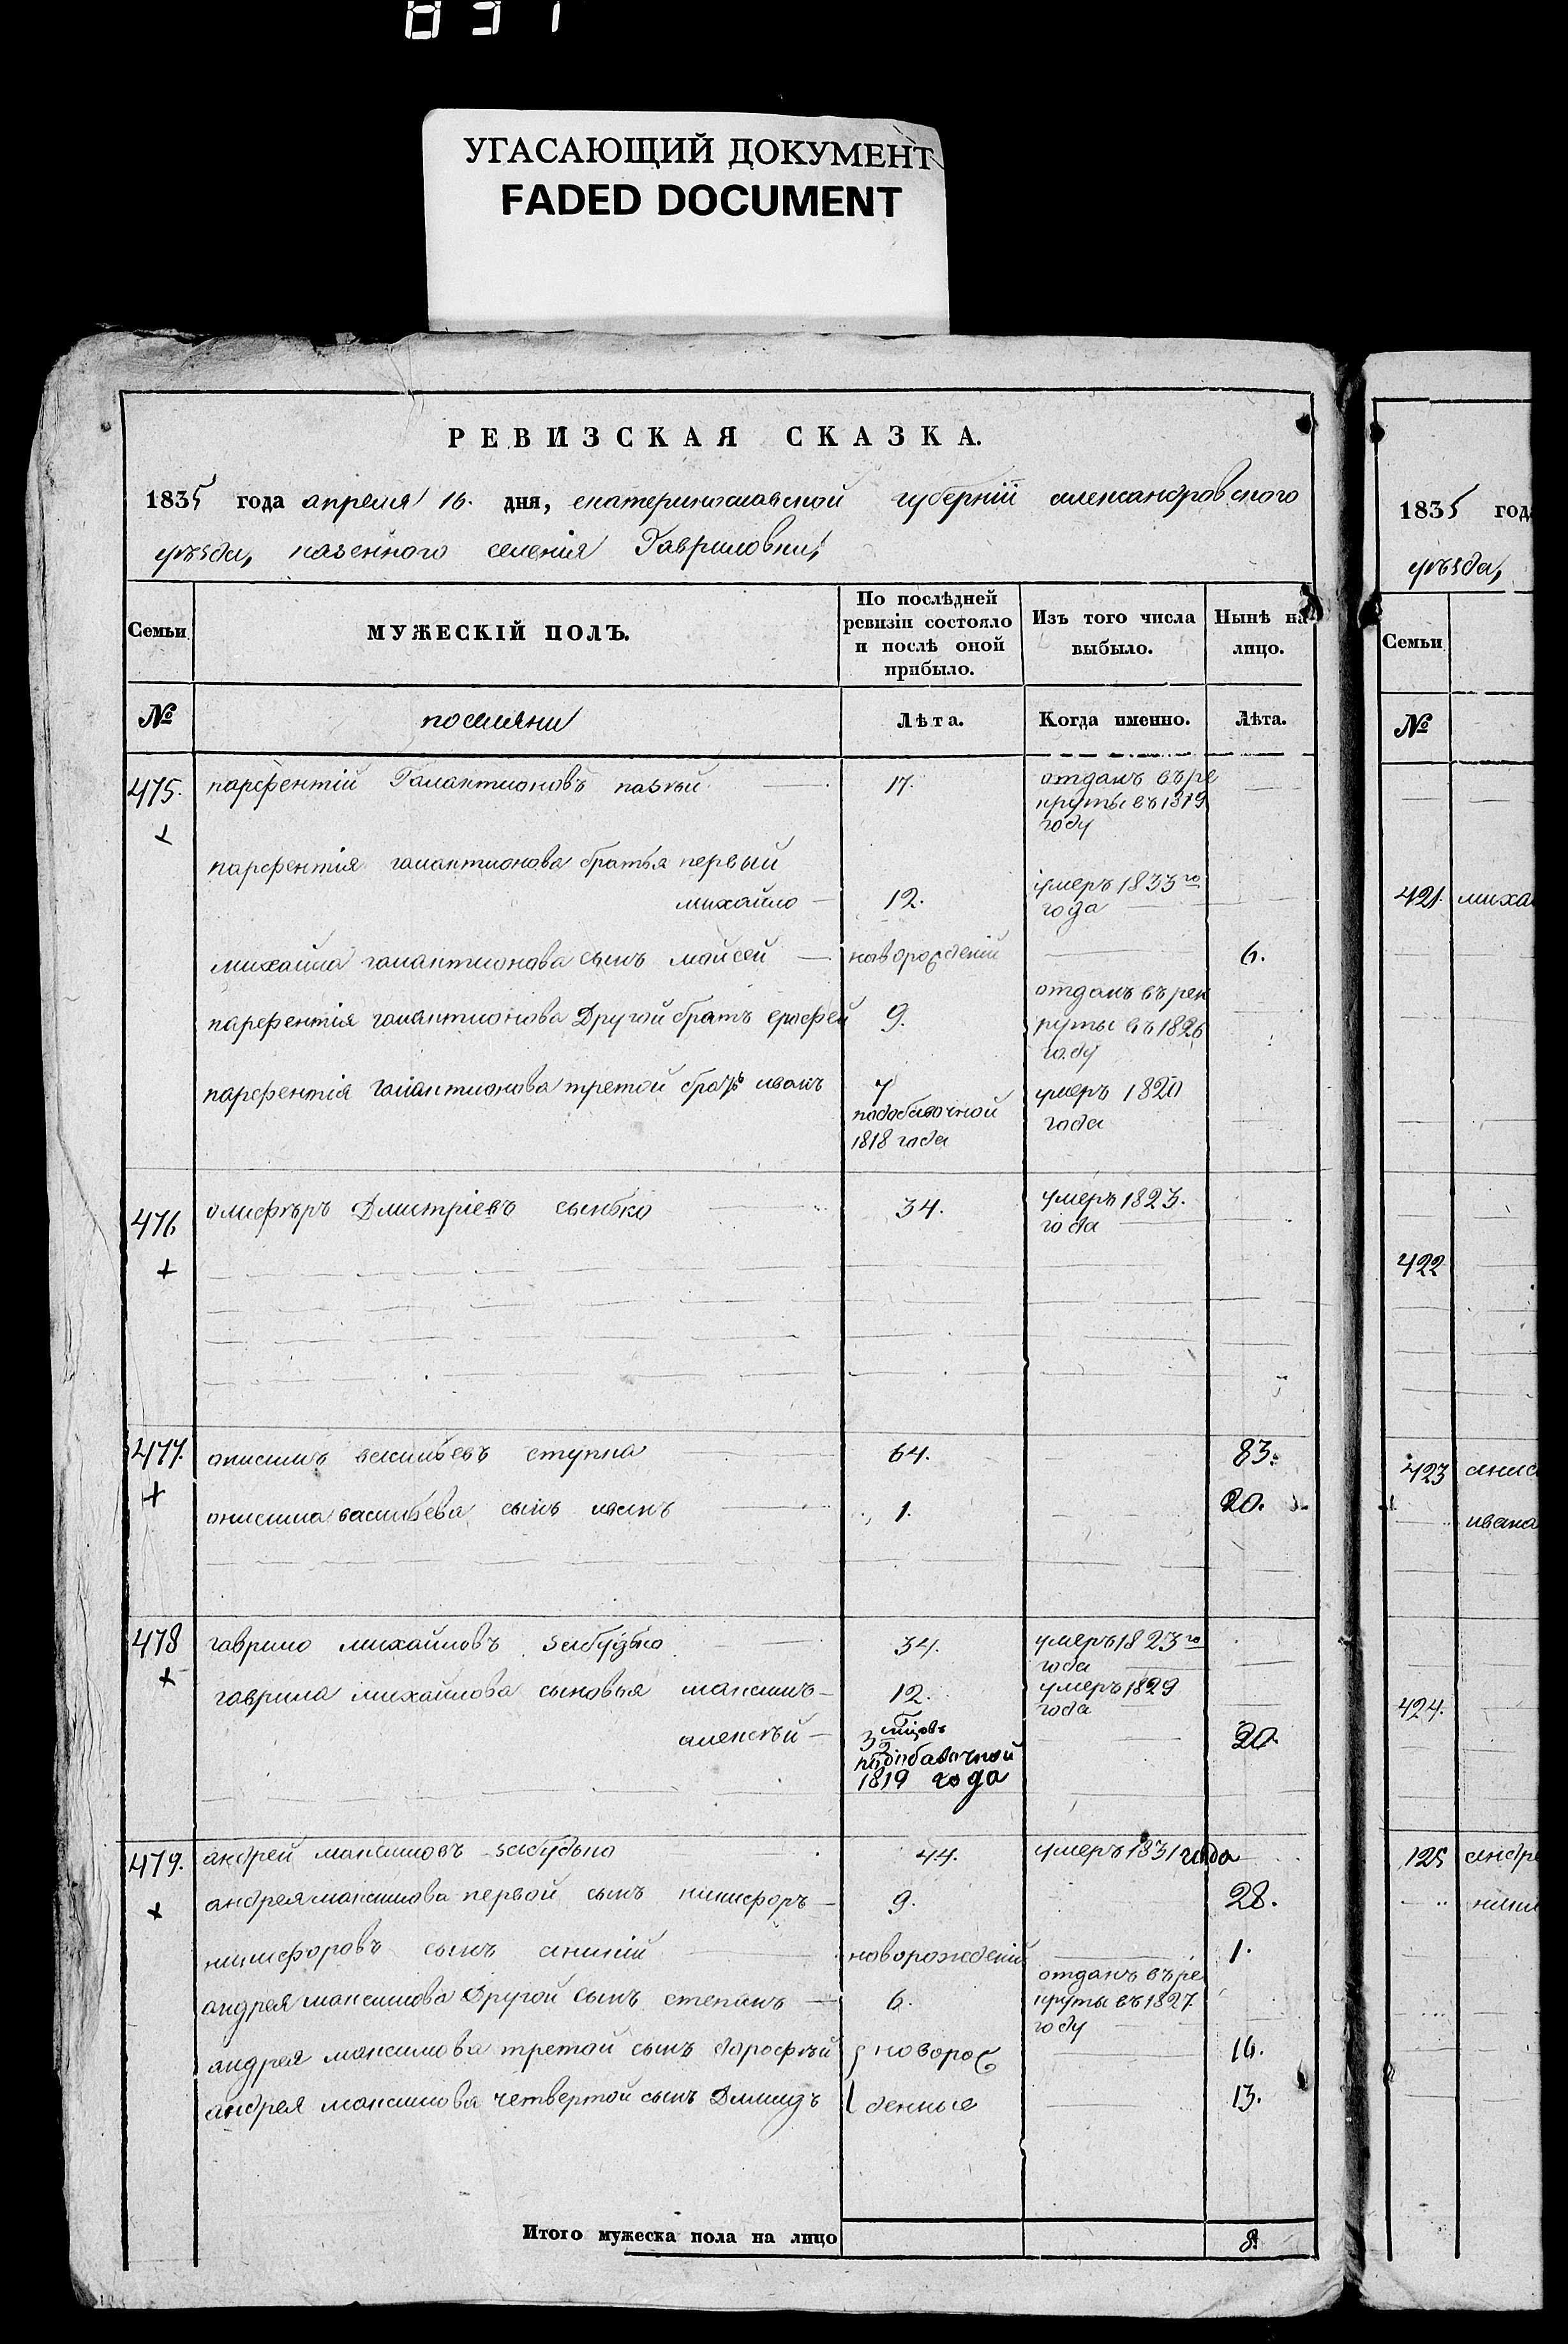 831
УГАСАЮЩИЙ ДОКУМЕНТ
FADED DOCUMENT
РЕВИЗСКАЯ СКАЗКА.
1835 года апреля 16. дня, екатеринославской губерніи александровского
уѣзда, казенного селенія Гавриловки,
Семьи
МУЖЕСКІЙ ПОЛЪ.
По послѣдней
ревизіи состояло
и послѣ оной
прибыло.
Изъ того числа
выбыло.
Нынѣ на
лицо.
№
поселяни
Лѣта.
Когда именно.
Лѣта.
475. парфентій Галактионовъ 17. отданъ въ ре
круты въ 1819
году
парфентія галактионова братья первый
михайло 12. умеръ 1833го
года
михайла галактионова сынъ мойсей новорожденій 6.
парфентія галактионова Другой братъ ерофей 9. отданъ въ рек
руты въ 1826
году
парфентія галактионова третой братъ иванъ 7
подобавочной
1818 года
умеръ 1820
года
476 Дмитріевъ 34. умеръ 1823.
года
477. онисимъ васильевъ ступка 64. 83.
онисима васильева сынъ 1. 20.
478 гаврило михайловъ забудько 34. умеръ 1823го
года
гаврила михайлова сыновья максимъ 12. умеръ 1829
года
алексѣй 3 мцовъ
подобавочной
1819 года
20.
479. андрей максимовъ забудько 44. умеръ 1831 года
андрея максимова первой сынъ никифоръ 9. 28.
никифоровъ сынъ новорожденій 1.
андрея максимова Другой сынъ степанъ 6. отданъ въ ре
круты въ 1827
году
андрея максимова третой сынъ дорофѣй новорож 16.
андрея максимова четвертой сынъ Демидъ денные 13.
Итого мужеска пола на лицо 8.
1835 год
уѣзда,
Семьи
№
421. миха
422
423 анис
ивана
424.
125 андре